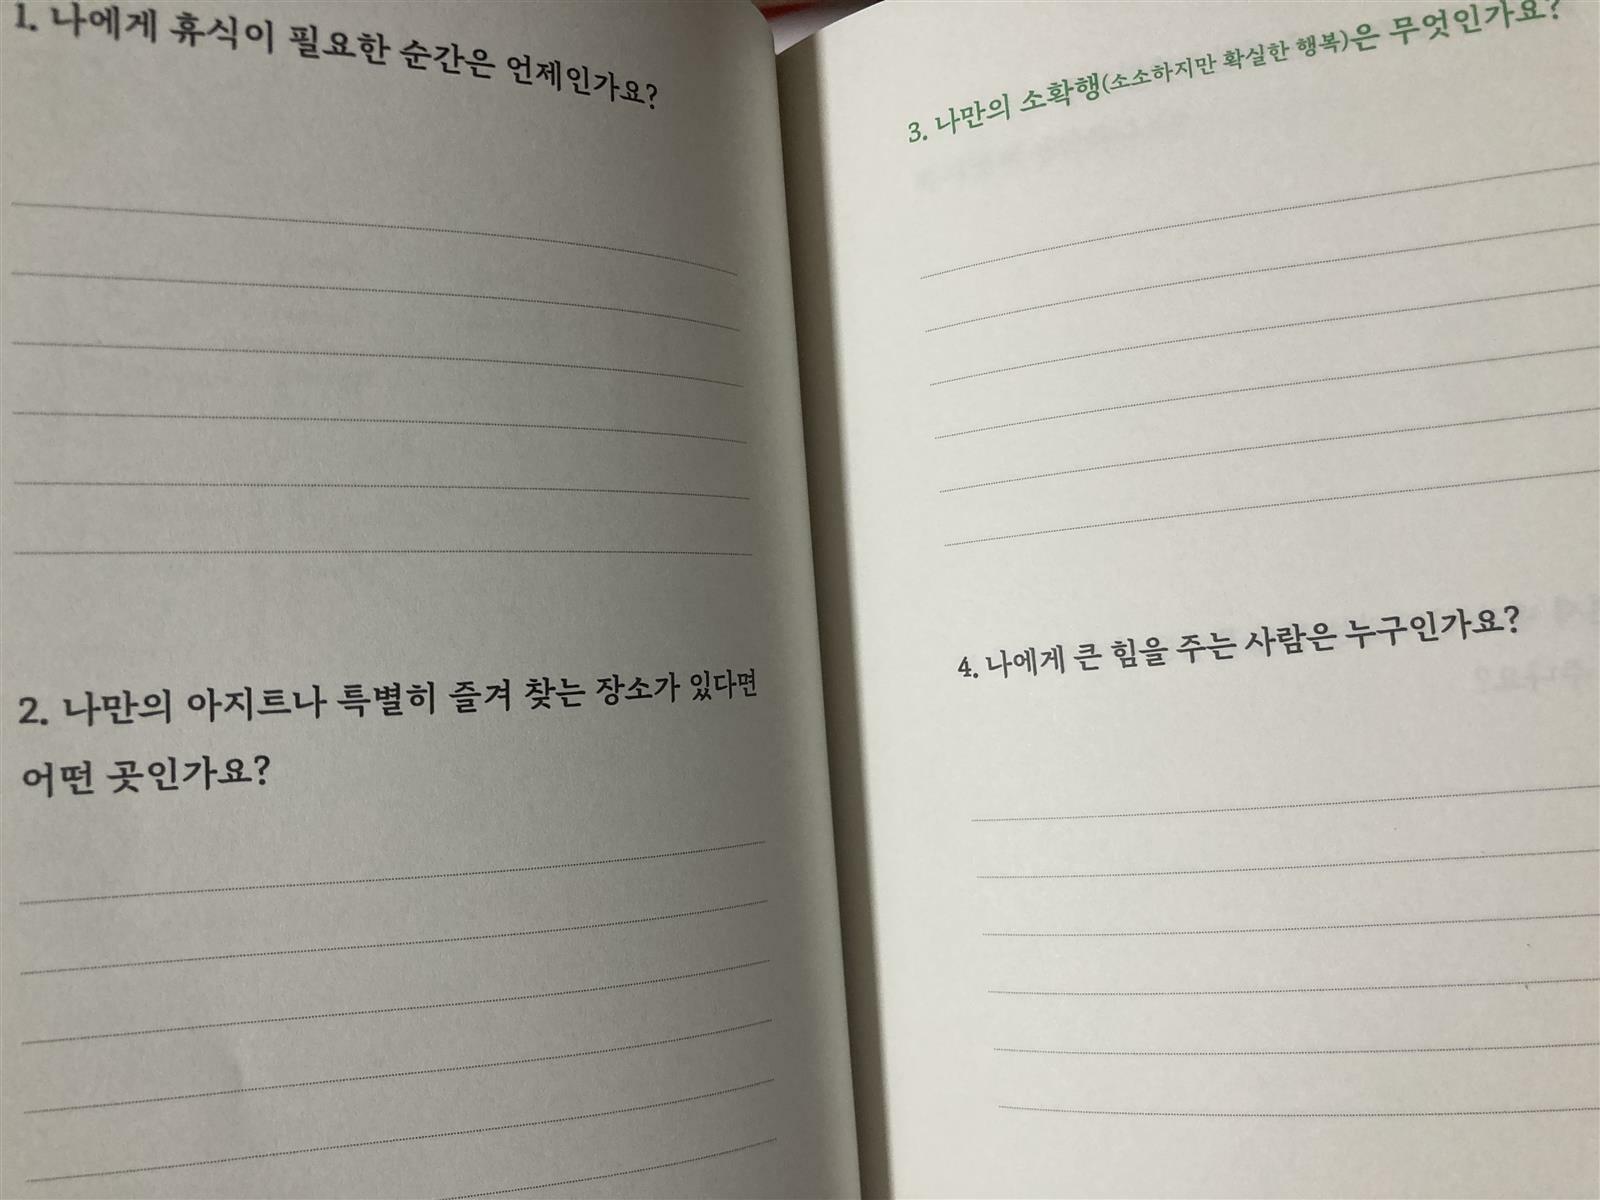 1. 나에게 휴식이 필요한 순간은 언제인가요?
2. 나만의 아지트나 특별히 즐겨 찾는 장소가 있다면
어떤 곳인가요?
3. 나만의 소확행(소소하지만 확실한 행복)은 무엇인가요?
4. 나에게 큰 힘을 주는 사람은 누구인가요?